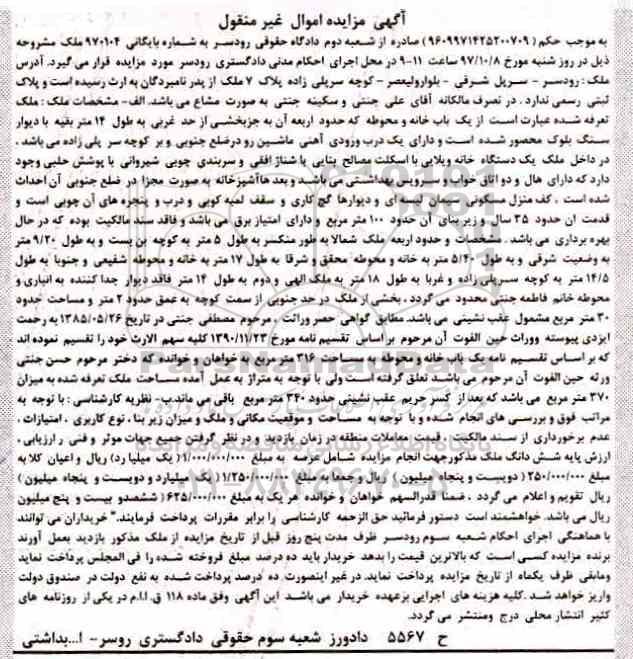 آگهی مزایده اموال غیر منقول
به موجب حکم (۹۶۰۹۹۷۱۴۲۵۲۰۰۷۰۹) صادره از شعبه دوم دادگاه حقوقی رودسر به شماره بایگانی ۹۷۰۱۰۴ ملک مشروحه
ذیل در روز شنبه مورخ ۹۷/۱۰/۸ ساعت ۱۱-۹ در محل اجرای احکام مدنی دادگستری رودسر مورد مزایده قرار می گیرد. آدرس
ملک : رودسر - سرپل شرقی - بلوارولیعصر - کوچه سرپلی زاده پلاک ۷ ملک از پدر نامبردگان به ارث رسیده است و پلاک
ثبتی رسمی ندارد . در تصرف مالکانه آقای علی جنتی و سکینه جنتی به صورت مشاع می باشد. الف- مشخصات ملک : ملک
تعرفه شده عبارت است از یک باب خانه و محوطه که حدود اربعه آن به جزبخشی از حد غربی به طول ۱۴ متر بقیه با دیوار
سنگ بلوک محصور شده است و دارای یک درب ورودی آهنی ماشین رو درضلع جنوبی و بر کوچه سر پلی زاده می باشد .
در داخل ملک یک دستگاه خانه ویلایی با اسکلت مصالح بنایی با شناژ افقی و سربندی چوبی شیروانی با پوشش حلبی وجود
دارد که دارای هال و دو اتاق خواب و سرویس بهداشتی می باشد و بعد هاآشپزخانه به صورت مجزا در ضلع جنوبی آن احداث
شده است . کف منزل مسکونی سیمان لیسه ای و دیوارها گچ کاری و سقف لمبه کوبی و درب و پنجره های آن چوبی است و
قدمت آن حدود ۳۵ سال و زیر بنای آن حدود ۱۰۰ متر مربع و دارای امتیاز برق می باشد و فاقد سند مالکیت بوده که در حال
بهره برداری می باشد . مشخصات و حدود اربعه ملک شمالا به طور منکسر به طول ۵ متر به کوچه بن بست و به طول ۹/۲۰ متر
به وضعیت شرقی و به طول ۵/۴۰ متر به خانه و محوطه محقق و شرقا به طول ۱۷ متر به خانه و محوطه شفیعی و جنوبا به طول
۱۴/۵ متر به کوچه سرپلی زاده و غربا به طول ۱۸ متر به ملک الهی و دوم به طول ۱۴ متر فاقد دیوار جدا کننده به انباری و
محوطه خانم فاطمه جنتی محدود می گردد . بخشی از ملک در حد جنوبی از سمت کوچه به عمق حدود ۲ متر و مساحت حدود
۳۰ متر مربع مشمول عقب نشینی می باشد. مطابق گواهی حصر وراثت ، مرحوم مصطفی جنتی در تاریخ ۱۳۸۵/۰۵/۲۶ به رحمت
ایزدی پیوسته ووراث حین الفوت آن مرحوم بر اساس تقسیم نامه مورخ ۱۳۹۰/۱۱/۲۳ کلیه سهم الارث خود را تقسیم نموده اند
که بر اساس تقسیم نامه یک باب خانه و محوطه به مساحت ۳۱۶ متر مربع به خواهان و خوانده که دختر مرحوم حسن جنتی
ورثه حین الفوت آن مرحوم می باشد تعلق گرفته است ولی با توجه به متراژ به عمل آمده مساحت ملک تعرفه شده به میزان
۳۷۰ متر مربع می باشد که بعد از کسر حریم عقب نشینی حدود ۳۴۰ متر مربع باقی می ماند.ب- نظریه کارشناسی : با توجه به
مراتب فوق و بررسی های انجام شده و با توجه به مساحت و موقعیت مکانی و ملک و میزان زیر بنا ، نوع کاربری ، امتیازات ،
عدم برخورداری از سند مالکیت ، قیمت معاملات منطقه در زمان بازدید و در نظر گرفتن جمیع جهات موثر و فنی و ارزیابی ،
ارزش پایه شش دانگ ملک مذکورجهت انجام مزایده شامل عرصه به مبلغ ۱/۰۰۰/۰۰۰/۰۰۰( یک میلیا رد) ریال و اعیان کلا به
مبلغ ۲۵۰/۰۰۰/۰۰۰ (دویست و پنجاه میلیون ) ریال و جمعا به مبلغ ۱/۲۵۰/۰۰۰/۰۰۰ ( یک میلیارد و دویست و پنجاه میلیون )
ریال تقویم و اعلام می گردد . ضمنا قدرالسهم خواهان و خوانده هر یک به مبلغ ۶۲۵/۰۰۰/۰۰۰ ( ششصدو بیست و پنج میلیون
ریال می باشد. خواهشمند است دستور فرمائید حق الزحمه کارشناسی را برابر مقررات پرداخت فرمایند." خریداران می توانند
با هماهنگی اجرای احکام شعبه سوم رودسر ظرف مدت پنج روز قبل از تاریخ مزایده از ملک مذکور بازدید بعمل آورند
برنده مزایده کسی است که بالاترین قیمت را بدهد خریدار باید ده درصد مبلغ فروخته شده را فی المجلس پرداخت نماید
ومابقی ظرف یکماه از تاریخ مزایده پرداخت نماید. در غیر اینصورت ده درصد پرداخت شده به نفع دولت در صندوق دولت
واریز خواهد شد .کلیه هزینه های اجرایی برعهده خریدار می باشد این آگهی وفق ماده ۱۱۸ ق.ا.ا.م در یکی از روزنامه های
کثیر انتشار محلی درج ومنتشر می گردد.
ح ۵۵۶۷ دادورز شعبه سوم حقوقی دادگستری روسر- ا...بداشتی